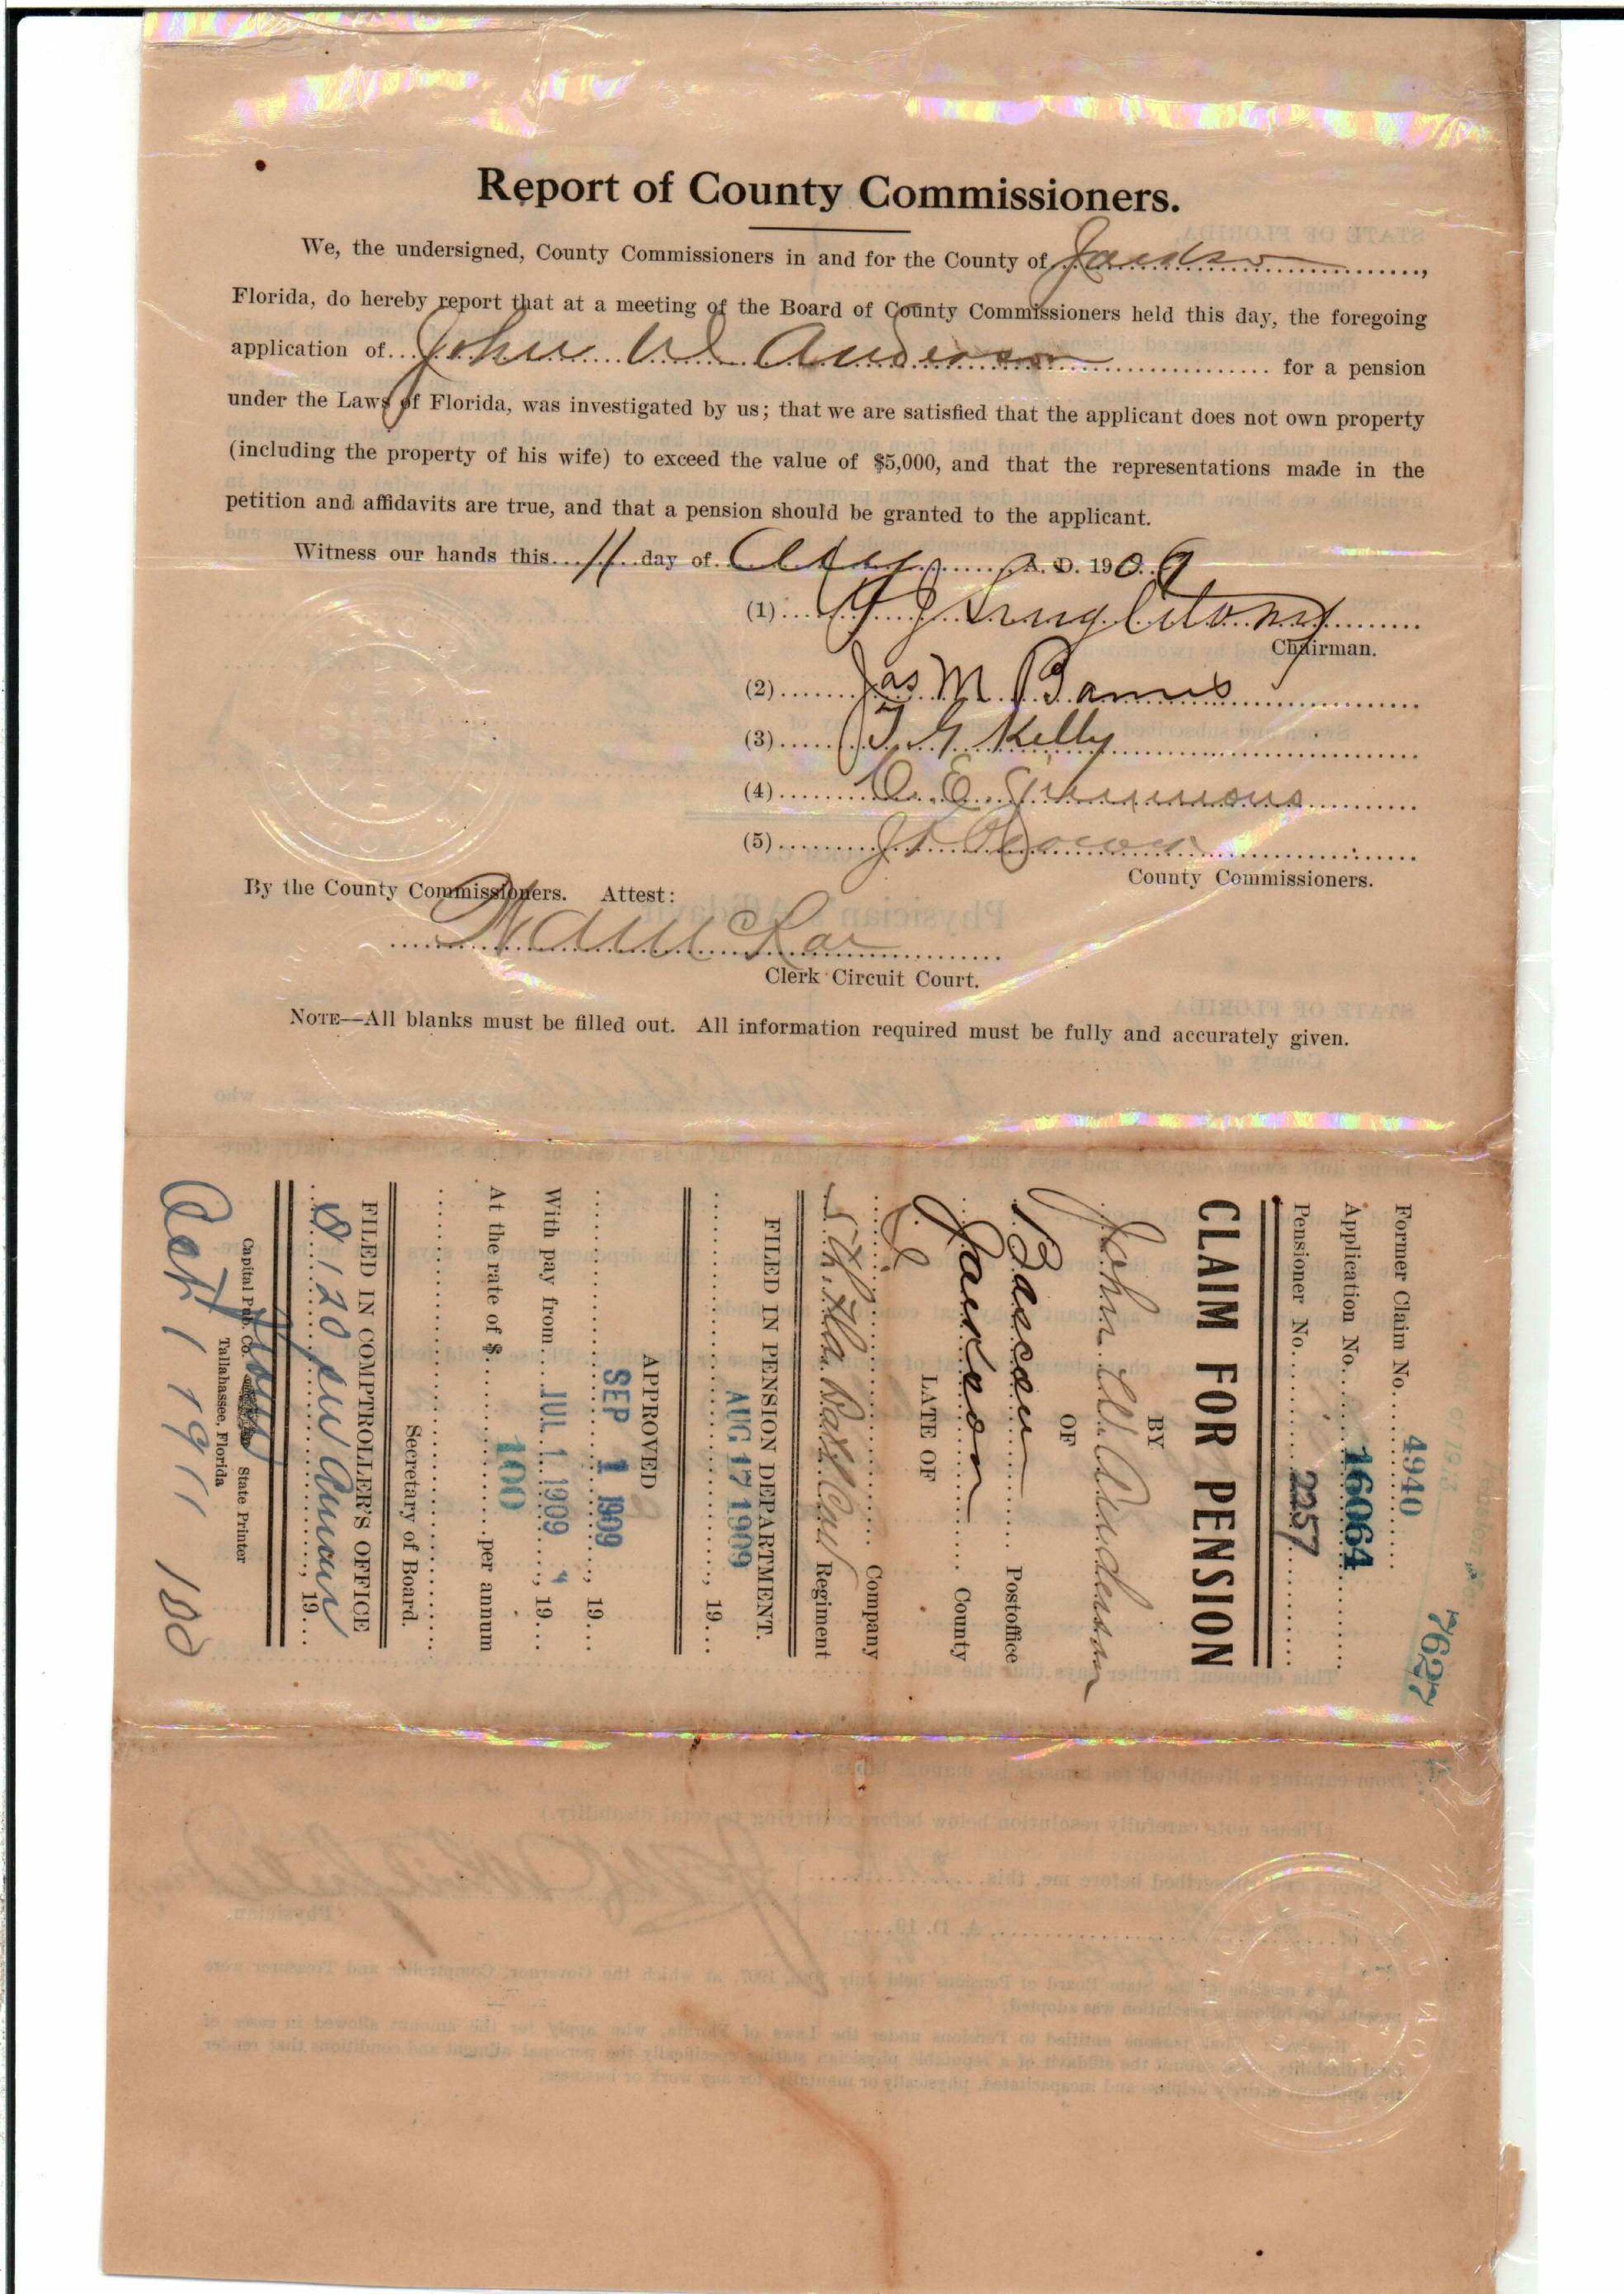 Report of County Commissioners.
We, the undersigned, County Commissioners in and for the County of Jackson,
Florida, do hereby report that at a meeting of the Board of County Commissioners held this day, the foregoing
application of John W Anderson for a pension
under the Laws of Florida, was investigated by us; that we are satisfied that the applicant does not own property
(including the property of his wife) to exceed the value of $5,000, and that the representations made in the
petition and affidavits are true, and that a pension should be granted to the applicant.
Witness our hands this 11 day of Aug A. D. 1909
(1) Singletary
Chairman.
(2) Jas M Barnes
(3) T. G Kelly
(4) E. Simmons
(5)
County Commissioners.
By the County Commissioners. Attest:
Clerk Circuit Court.
NOTE—All blanks must be filled out. All information required must be fully and accurately given.
7627
Former Claim No. 4940
Application No. 16064
Pensioner No. 2257
CLAIM FOR PENSION
BY
John W. Anderson
OF
Bascom Postoffice
Jackson County
LATE OF
Company
5th. Fla. Batt Cav Regiment
FILED IN PENSION DEPARTMENT.
AUG 17 1909, 19
APPROVED
SEP 1 1909, 19
With pay from JUL 1 1909, 19
At the rate of $ 100 per annum
Secretary of Board.
FILED IN COMPTROLLER'S OFFICE
$120 per Annum, 19
Capital Pub. Co. State Printer
Tallahassee, Florida
1911 100